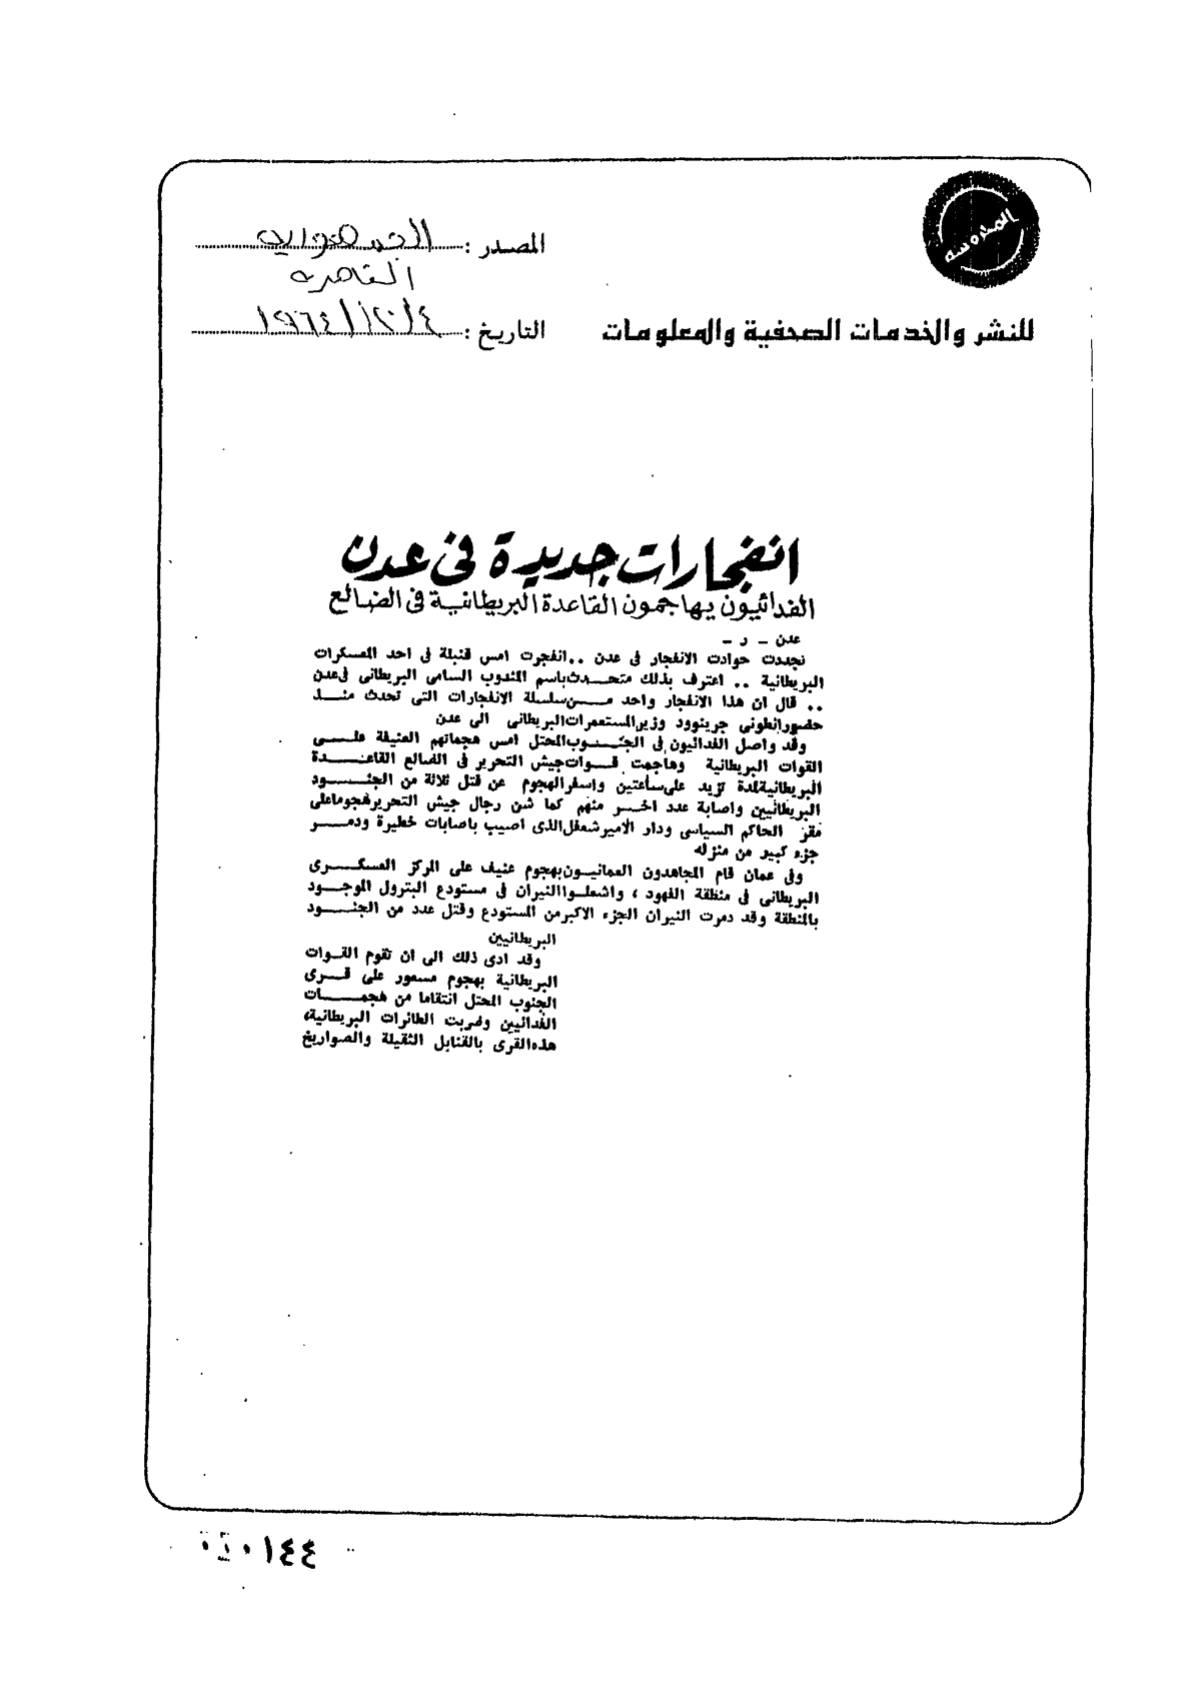 المحروسة
المصدر : الجمهورية
القاهرة
للنشر والخدمات الصحفية والمعلومات
التاريخ : ٤/١٢/١٩٦٤
انفجارات جديدة فى عدن
الفدائيون يهاجمون القاعدة البريطانية فى الضالع
عدن ـ ر ـ
تجددت حوادث الانفجار فى عدن .. انفجرت امس قنبلة فى احد المعسكرات
البريطانية .. اعترف بذلك متحدث باسم المندوب السامى البريطانى فى عدن
.. قال ان هذا الانفجار واحد من سلسلة الانفجارات التى تحدث منذ
حضور انطونى جرينوود وزير المستعمرات البريطانى الى عدن
وقد واصل الفدائيون فى الجنوب المحتل امس هجماتهم العنيفة على
القوات البريطانية وهاجمت قوات جيش التحرير فى الضالع القاعدة
البريطانية لمدة تزيد على ساعتين واسفر الهجوم عن قتل ثلاثة من الجنود
البريطانيين واصابة عدد اخر منهم كما شن رجال جيش التحرير هجوما على
مقر الحاكم السياسى ودار الامير شعفل الذى اصيب باصابات خطيرة ودمر
جزء كبير من منزله
وفى عمان قام المجاهدون العمانيون بهجوم عنيف على المركز العسكرى
البريطانى فى منطقة الفهود ، واشعلوا النيران فى مستودع البترول الموجود
بالمنطقة وقد دمرت النيران الجزء الاكبر من المستودع وقتل عدد من الجنود
البريطانيين
وقد ادى ذلك الى ان تقوم القوات
البريطانية بهجوم مسعور على قرى
الجنوب المحتل انتقاما من هجمات
الفدائيين وضربت الطائرات البريطانية
هذه القرى بالقنابل الثقيلة والصواريخ
٠١٤٤